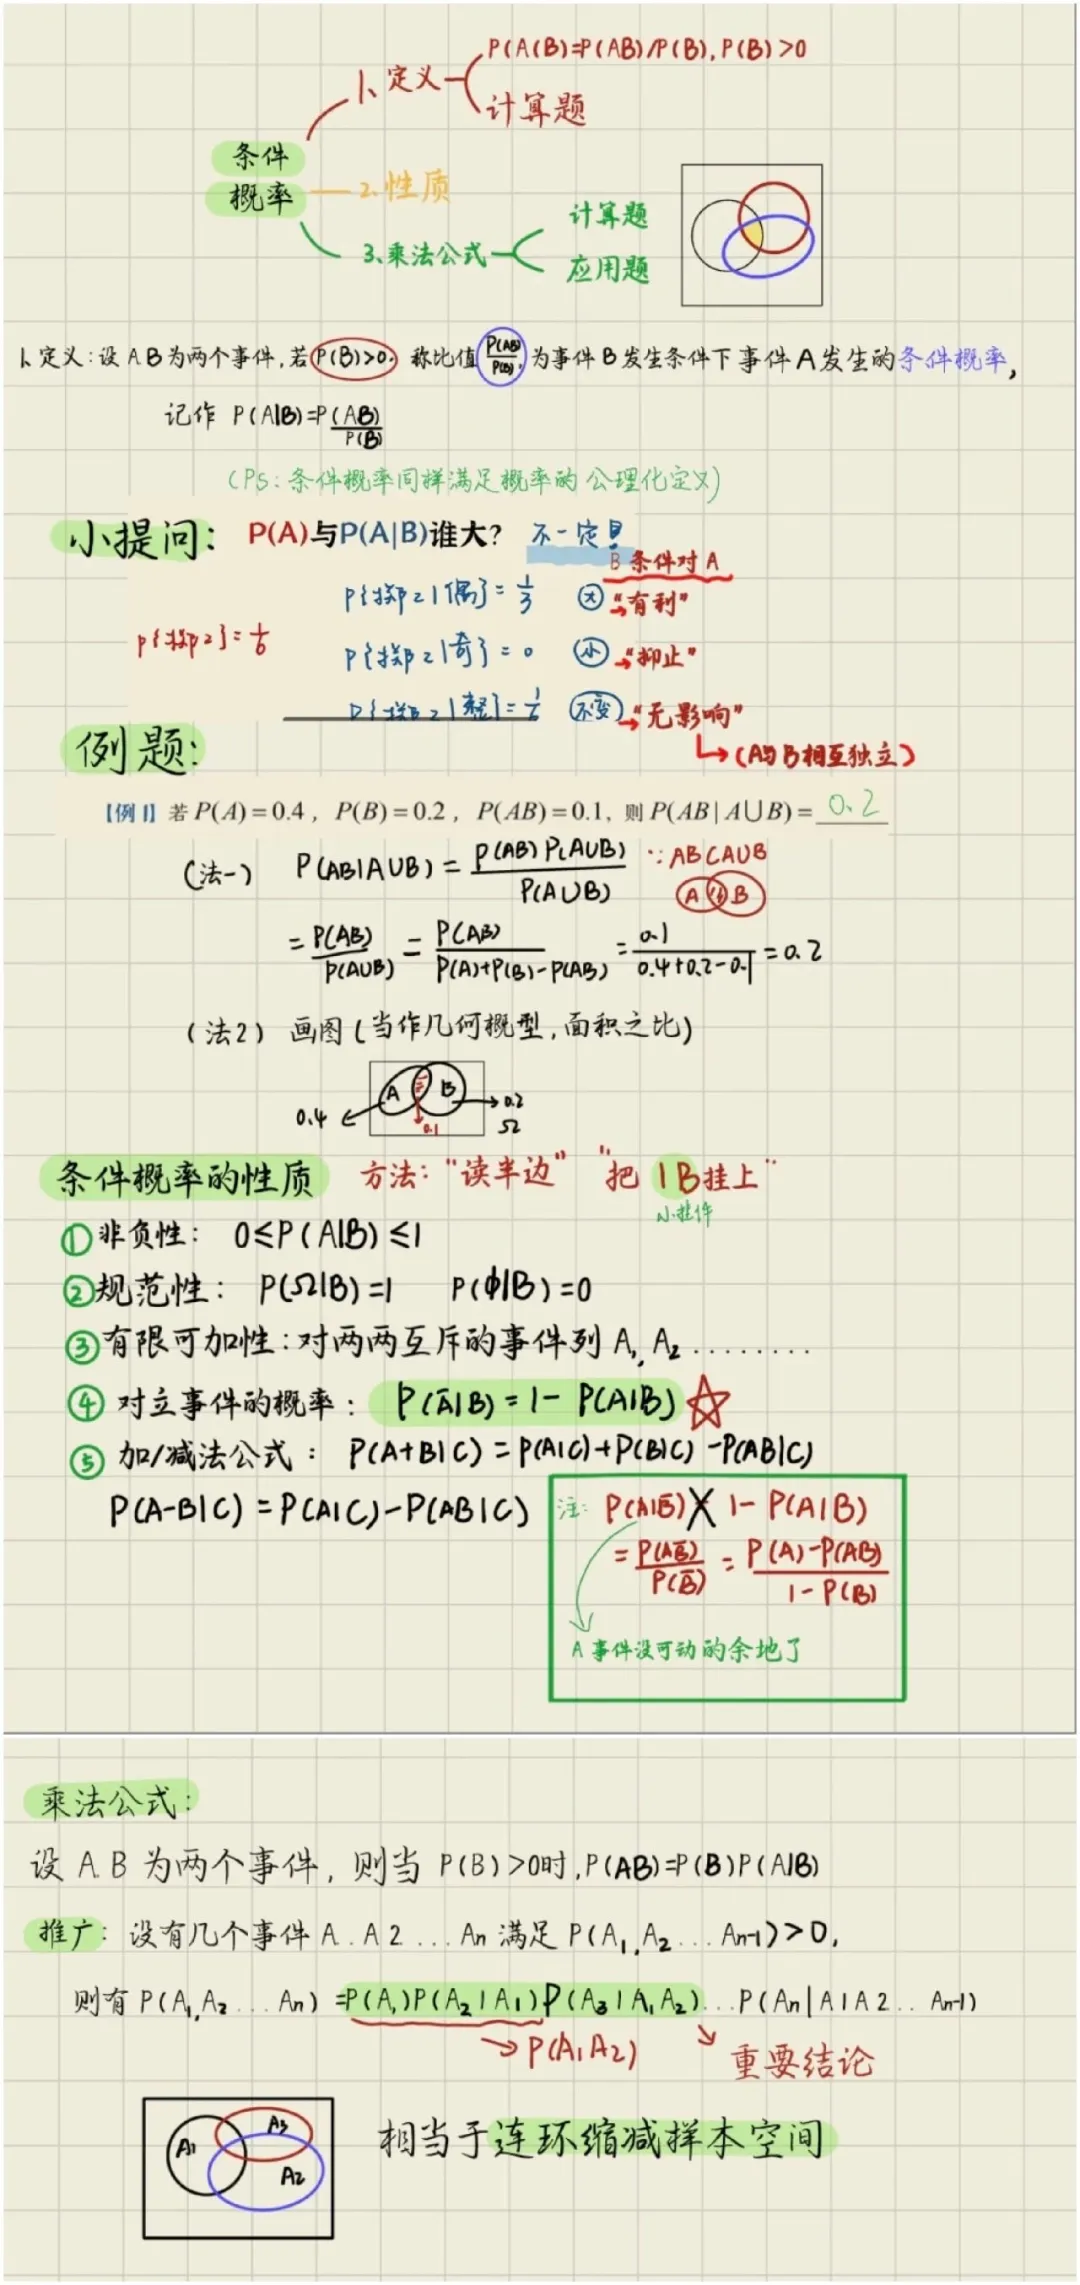 1、定义 P(A(B)=P(AB)/P(B), P(B)>0
计算题
条件
概率
2.性质
3、乘法公式
计算题
应用题
1、定义:设AB为两个事件,若P(B)>0. 称比值P(AB)/P(B),为事件B发生条件下事件A发生的条件概率,
记作 P(A|B)=P(AB)/P(B)
(PS:条件概率同样满足概率的公理化定义)
小提问: P(A)与P(A|B)谁大? 不一定!
B条件对A
P{掷2|偶}=1/3 大→"有利"
P{掷2}=1/6
P{掷2|奇}=0 小→"抑止"
P{掷2|整}=1/6 不变→"无影响"
→(A与B相互独立)
例题:
【例1】若P(A)=0.4, P(B)=0.2, P(AB)=0.1, 则P(AB|A∪B)=0.2
(法一) P(AB|A∪B)=P(AB)P(A∪B)/P(A∪B) ∵AB⊂A∪B
A B
=P(AB)/P(A∪B)=P(AB)/P(A)+P(B)-P(AB)=0.1/0.4+0.2-0.1=0.2
(法2) 画图(当作几何概型,面积之比)
A B
0.4 0.1 0.2
Ω
条件概率的性质 方法:"读半边" "把|B挂上"
小挂件
①非负性: 0≤P(A|B)≤1
②规范性: P(Ω|B)=1 P(ϕ|B)=0
③有限可加性:对两两互斥的事件列A₁, A₂........
④对立事件的概率: P(Ā|B)=1-P(A|B)☆
⑤加/减法公式: P(A+B|C)=P(A|C)+P(B|C)-P(AB|C)
P(A-B|C)=P(A|C)-P(AB|C)
注: P(A|B̄)≠1-P(A|B)
=P(AB̄)/P(B̄)=P(A)-P(AB)/1-P(B)
A事件没可动的余地了
乘法公式:
设A.B为两个事件,则当P(B)>0时,P(AB)=P(B)P(A|B)
推广:设有几个事件A.A2...An满足P(A₁,A₂...An-1)>0,
则有P(A₁,A₂...An)=P(A₁)P(A₂|A₁)P(A₃|A₁A₂)...P(An|A1A2..An-1)
→P(A₁A₂) ↘重要结论
A1 A3 A2
相当于连环缩减样本空间